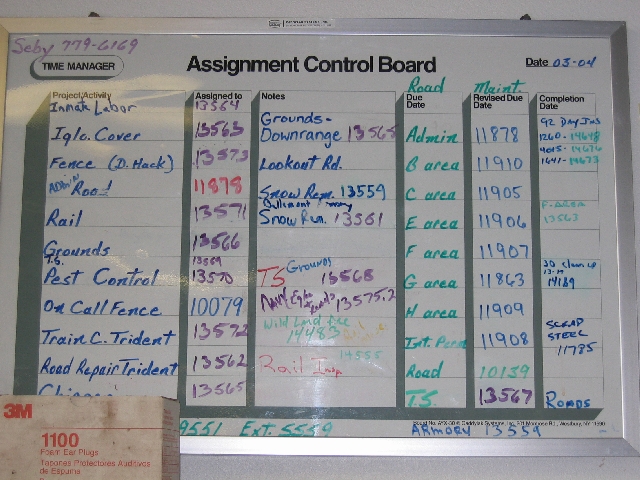 Seby 779-6169
TIME MANAGER
Assignment Control Board
Date 03-04
Road Maint.
Project/Activity Assigned to Notes Due Date Revised Due Date Completion Date
Inmate Labor 13564
Iglo. Cover 13563
Fence (D. Mack) 13573
ADMIN Road 11878
Rail 13571
Grounds 13566
T.S. 13569
Pest Control 13570
On Call Fence 10079
Train C. Trident 13572
Road Repair Trident 13562
13565
Grounds-
Downrange 13565
Lookout Rd.
Snow Rem. 13559
Snow Rem. 13561
TS Grounds 13568
13575.2
Wild Land Fire
14483
Rail Insp 14555
Admin 11878
B area 11910
C area 11905
E area 11906
F area 11907
G area 11863
H area 11909
Int. Perm 11908
Road 10139
T.S 13567
92 Day Ins
1260-14648
4015-14676
1641-14673
F-AREA
13563
30 Clean up
14189
SCRAP
STEEL
11785
ROADS
9551 Ext. 5559
ARMORY 13559
3M
1100
Foam Ear Plugs
Tapones Protectores Auditivos
de Espuma